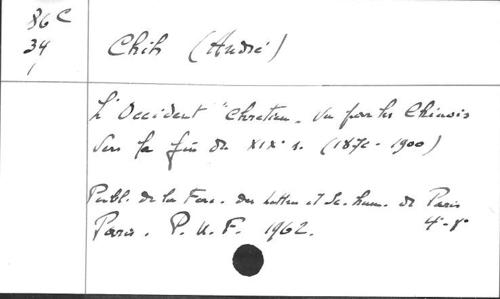 86 C
34
1
Chih (André)
L'Occident "Chrétien" vu par les Chinois
vers la fin du XIXe s. (1870-1900)
Publ. de la Fac. des lettres et Sc. hum. de Paris
Paris. P. U. F. 1962.